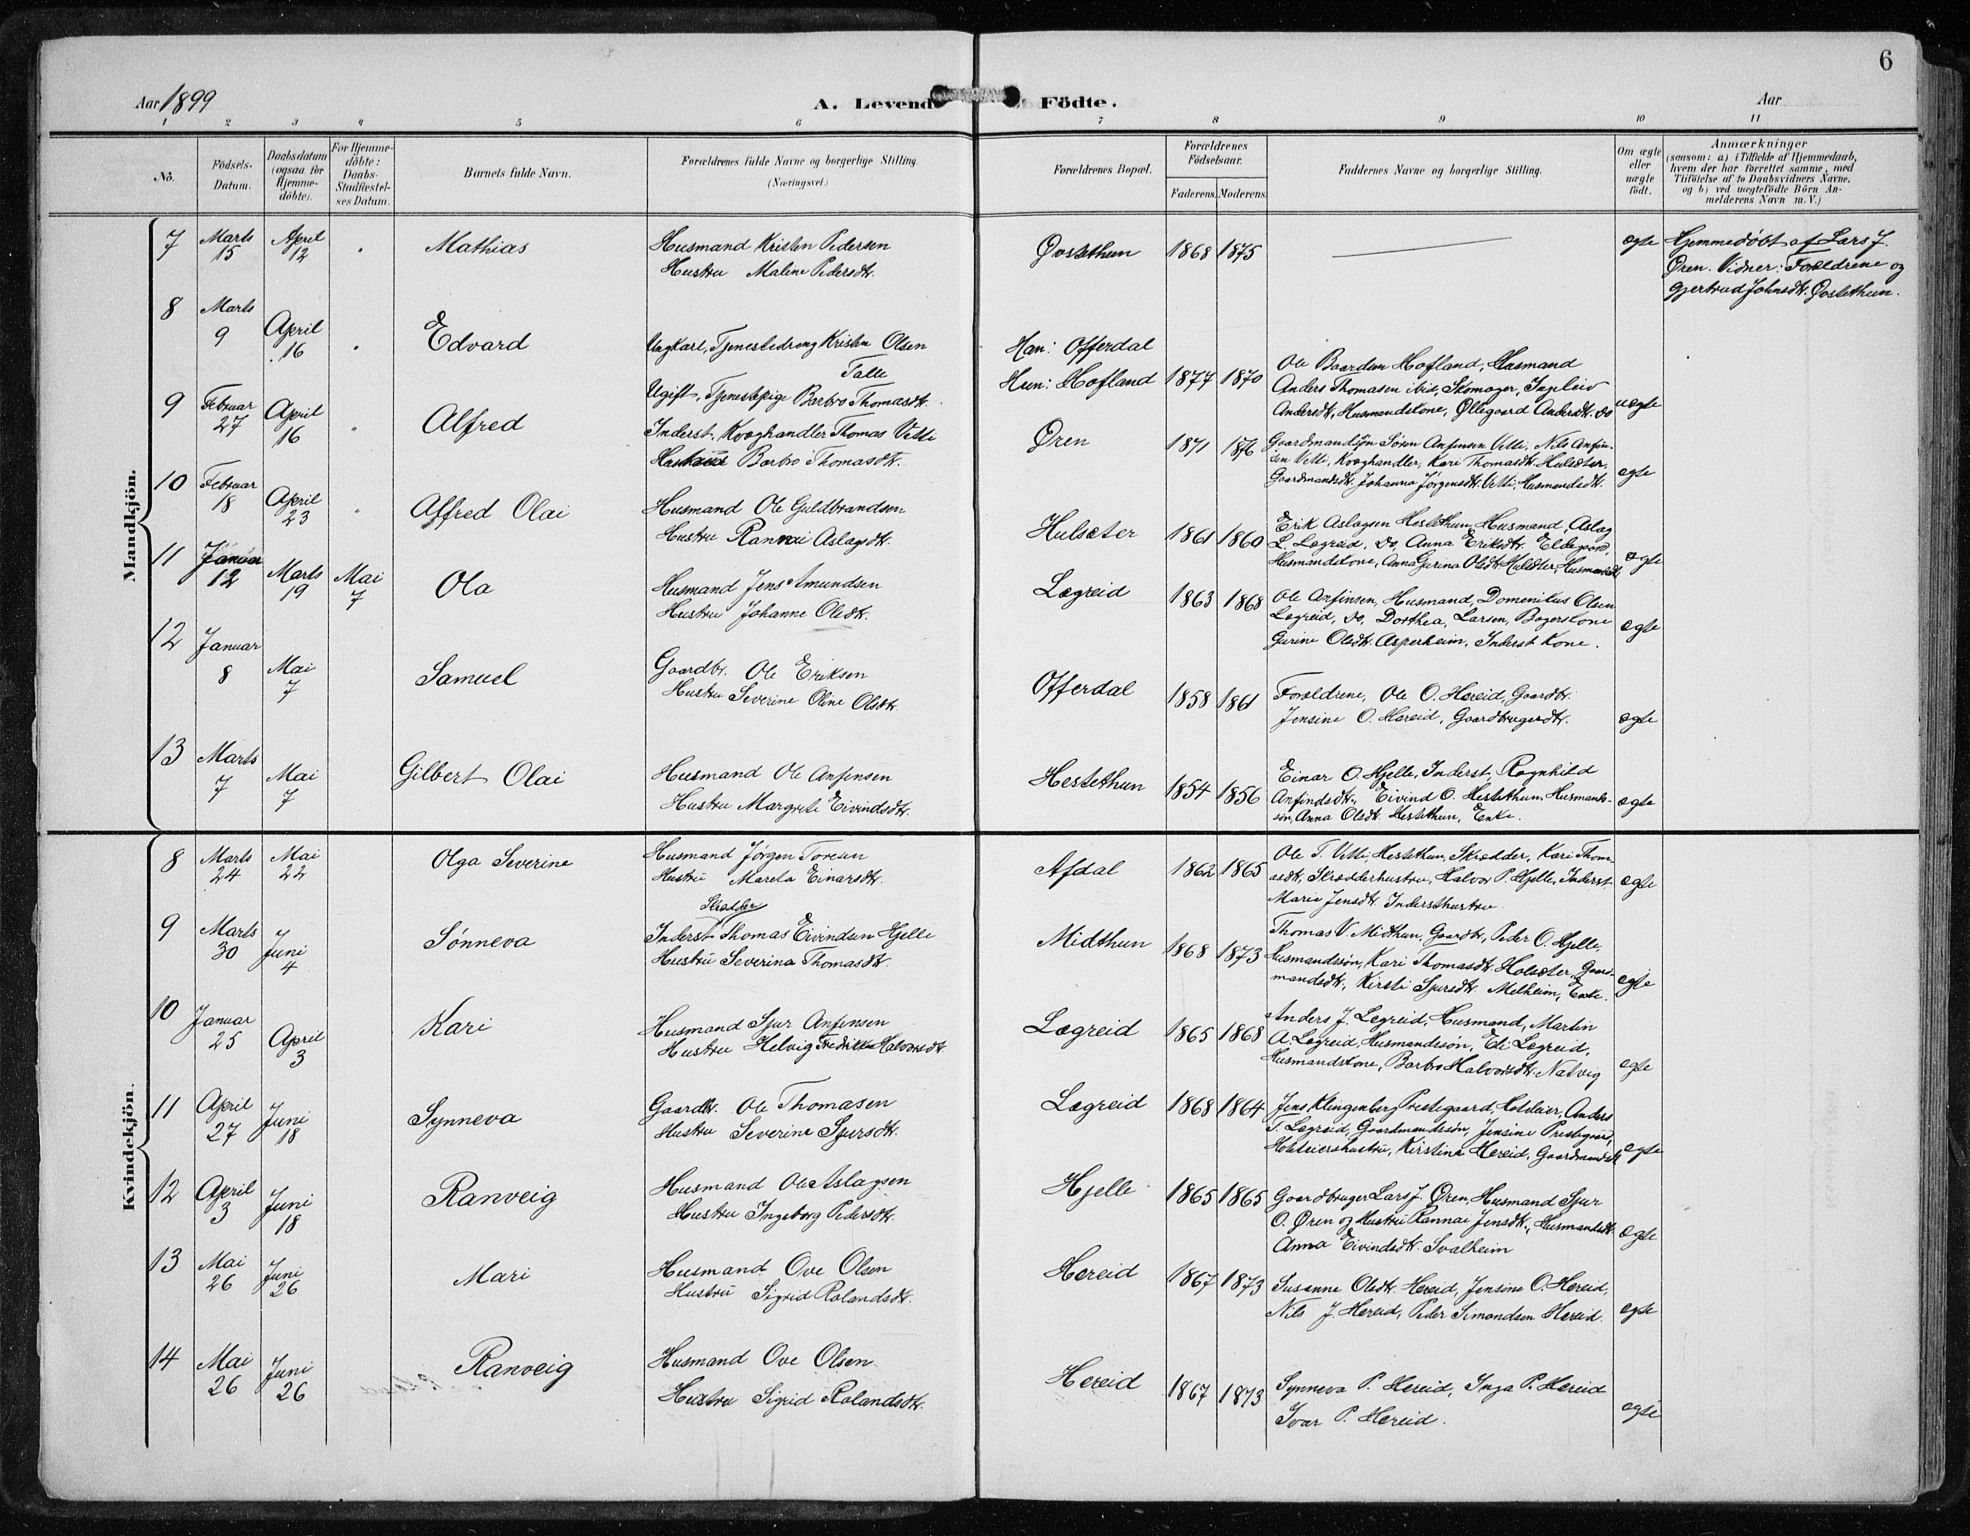 6
Aar 1899
A. Levende Födte.
Aar
1 2 3 4 5 6 7 8 9 10 11
No.
Födsels-Datum.
Daabsdatum (ogsaa for Hjemme-döbte).
For Hjemme-döbte: Daabs-Stadfæstel-ses Datum.
Barnets fulde Navn.
Forældrenes fulde Navne og borgerlige Stilling. (Næringsvei.)
Forældrenes Bopæl.
Forældrenes Födselsaar.
Faderens. Moderens.
Faddernes Navne og borgerlige Stilling.
Om ægte eller uægte födt.
Anmærkninger
(saasom: a) i Tilfælde af Hjemmedaab, hvem der har forrettet samme, med Tilföielse af to Daabsvidners Navne, og b) ved uægtefödte Börn An-melderens Navn m. V.)
Mandkjön.
7 Marts 15 April 12 Mathias
Husmand Kristen Pedersen
Hustru Maline Pedersdt.
Øvstethun 1868 1875 ægte
Hjemmedøbt af Lars J.
Øren. Vidner: Forældrene og
Gjertrud Johnsdt. Øvstethun.
8 Marts 9 April 16 Edvard
Ungkarl, Tjenestedreng Kristen Olsen
Talle
Ugift, Tjenestepige Barbro Thomasdt.
Han: Offerdal
Hun: Hofland 1877 1870
Ole Baardsen Hofland, Husmand
Anders Thomasen ibid, Skomager, Ingleiv
Andersdt, Husmandskone, Øllegaard Andersdt. do
uægte
9 Februar 27 April 16 Alfred
Inderst, Kvæghandler Thomas Vetti
Hustru Barbro Thomasdt.
Øren 1871 1876
Gaardmandssøn Søren Anfinsen Vetti, Nils Anfin-
sen Vetti, Kvæghandler, Kari Thomasdt. Hulsæter,
Gaardmandsdt. Johanna Jørgensdt. Vetti, Husmandsdt.
ægte
10 Februar 18 April 23 Alfred Olai
Husmand Ole Guldbrandsen
Hustru Rannei Aslagsdt.
Hulsæter 1861 1860
Erik Aslagsen Hestethun, Husmand, Aslag
L. Lægreid, do, Anna Eriksdt. Eldegaard,
Husmandskone, Anna Gurina Olsdt. Hulsæter, Husmandsdt
ægte
11 Januar 12 Marts 19 Mai 7 Ola
Husmand Jens Amundsen
Hustru Johanne Olsdt.
Lægreid 1863 1868
Ole Anfinsen, Husmand, Domenikus Olsen
Lægreid, do, Dorthea Larsen, Bagerskone
Gurine Olsdt. Asperheim, Inderst Kone.
ægte
12 Januar 8 Mai 7 Samuel
Gaardbr. Ole Eriksen
Hustru Severine Oline Olsdt.
Offerdal 1858 1861
Forældrene, Ole O. Hereid, Gaardbr.
Jensine O. Hereid, Gaardbrugerdt.
ægte
13 Marts 7 Mai 7 Gilbert Olai
Husmand Ole Anfinsen
Hustru Margrete Eivindsdt.
Hestethun 1854 1856
Einar O. Hjelle, Inderst, Ragnhild
Anfindsdt., Eivind O. Hestethun, Husmands-
søn, Anna Olsdt. Hestethun, Enke.
ægte
Kvindekjön.
8 Marts 24 Mai 22 Olga Severine
Husmand Jørgen Toresen
Hustru Mareta Einarsdt.
Afdal 1862 1865
Ole T. Vetti, Hestethun, Skrædder, Kari Thom-
asdt., Skrædderhustru, Halvor P. Hjelle, Inderst
Marie Jensdt. Indersthustru
ægte
9 Marts 30 Juni 4 Sønneva
Skrædder
Inderst Thomas Eivindsen Hjelle
Hustru Severina Thomasdt.
Midthun 1868 1873
Thomas V. Midthun, Gaardbr., Peder O. Hjelle,
Husmandssøn, Kari Thomasdt. Holsæter, Gaard-
mandsdt, Kirsti Sjursdt. Melheim, Enke.
ægte
10 Januar 25 April 3 Kari
Husmand Sjur Anfinsen
Hustru Helvig Fredrikke Halvorsdt
Lægreid 1865 1868
Anders J. Lægreid, Husmand, Martin
A. Lægreid, Husmandssøn, Eli Lægreid,
Husmandskone, Barbro Halvorsdt. Natvig
ægte
11 April 27 Juni 18 Synneva
Gaardbr. Ole Thomasen
Hustru Severine Sjursdt.
Lægreid 1868 1864
Jens Klingenberg Prestegaard, Hoteleier, Anders
T. Lægreid, Gaardmandssøn, Jensine Prestegaard,
Hoteleiershustru, Kirstina Hereid, Gaardmandsdt
ægte
12 April 3 Juni 18 Ranveig
Husmand Ole Aslagsen
Hustru Ingeborg Pedersdt.
Hjelle 1865 1865
Gaardbruger Lars J. Øren, Husmand Sjur
O. Øren og Hustru Rannai Jensdt., Husmandsdt.
Anna Eivindsdt. Svalheim
ægte
13 Mai 26 Juni 26 Mari
Husmand Ove Olsen
Hustru Sigrid Rolandsdt.
Hereid 1867 1873
Susanne Olsdt. Hereid, Jensine O. Hereid,
Nils J. Hereid, Peder Simondsen Hereid.
ægte
14 Mai 26 Juni 26 Ranveig
Husmand Ove Olsen
Hustru Sigrid Rolandsdt.
Hereid 1867 1873
Synneva P. Hereid, Inga P. Hereid
Ivar P. Hereid.
ægte